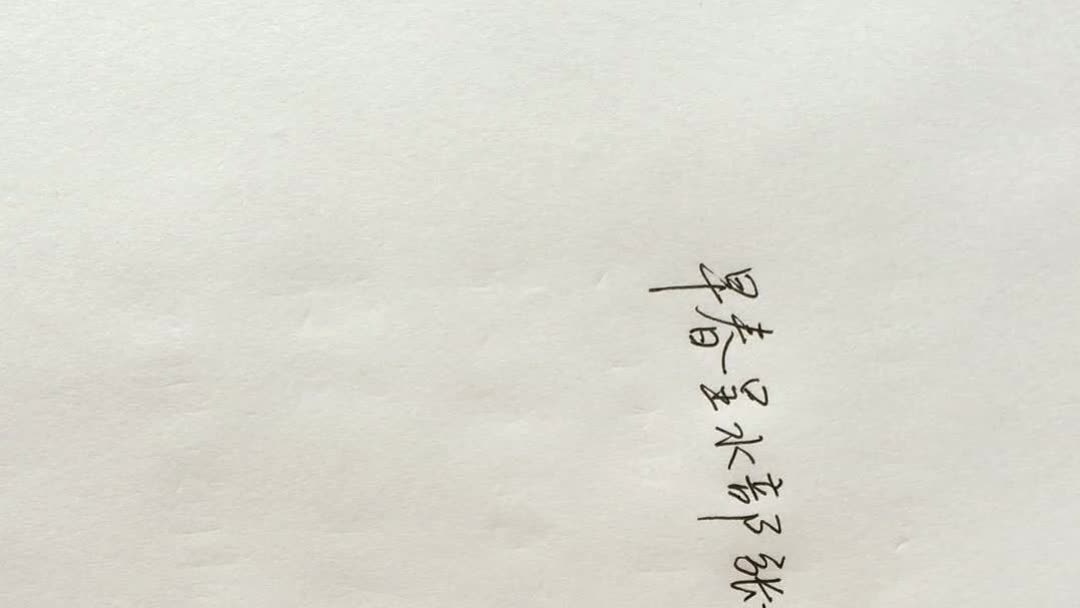 早春呈水部张